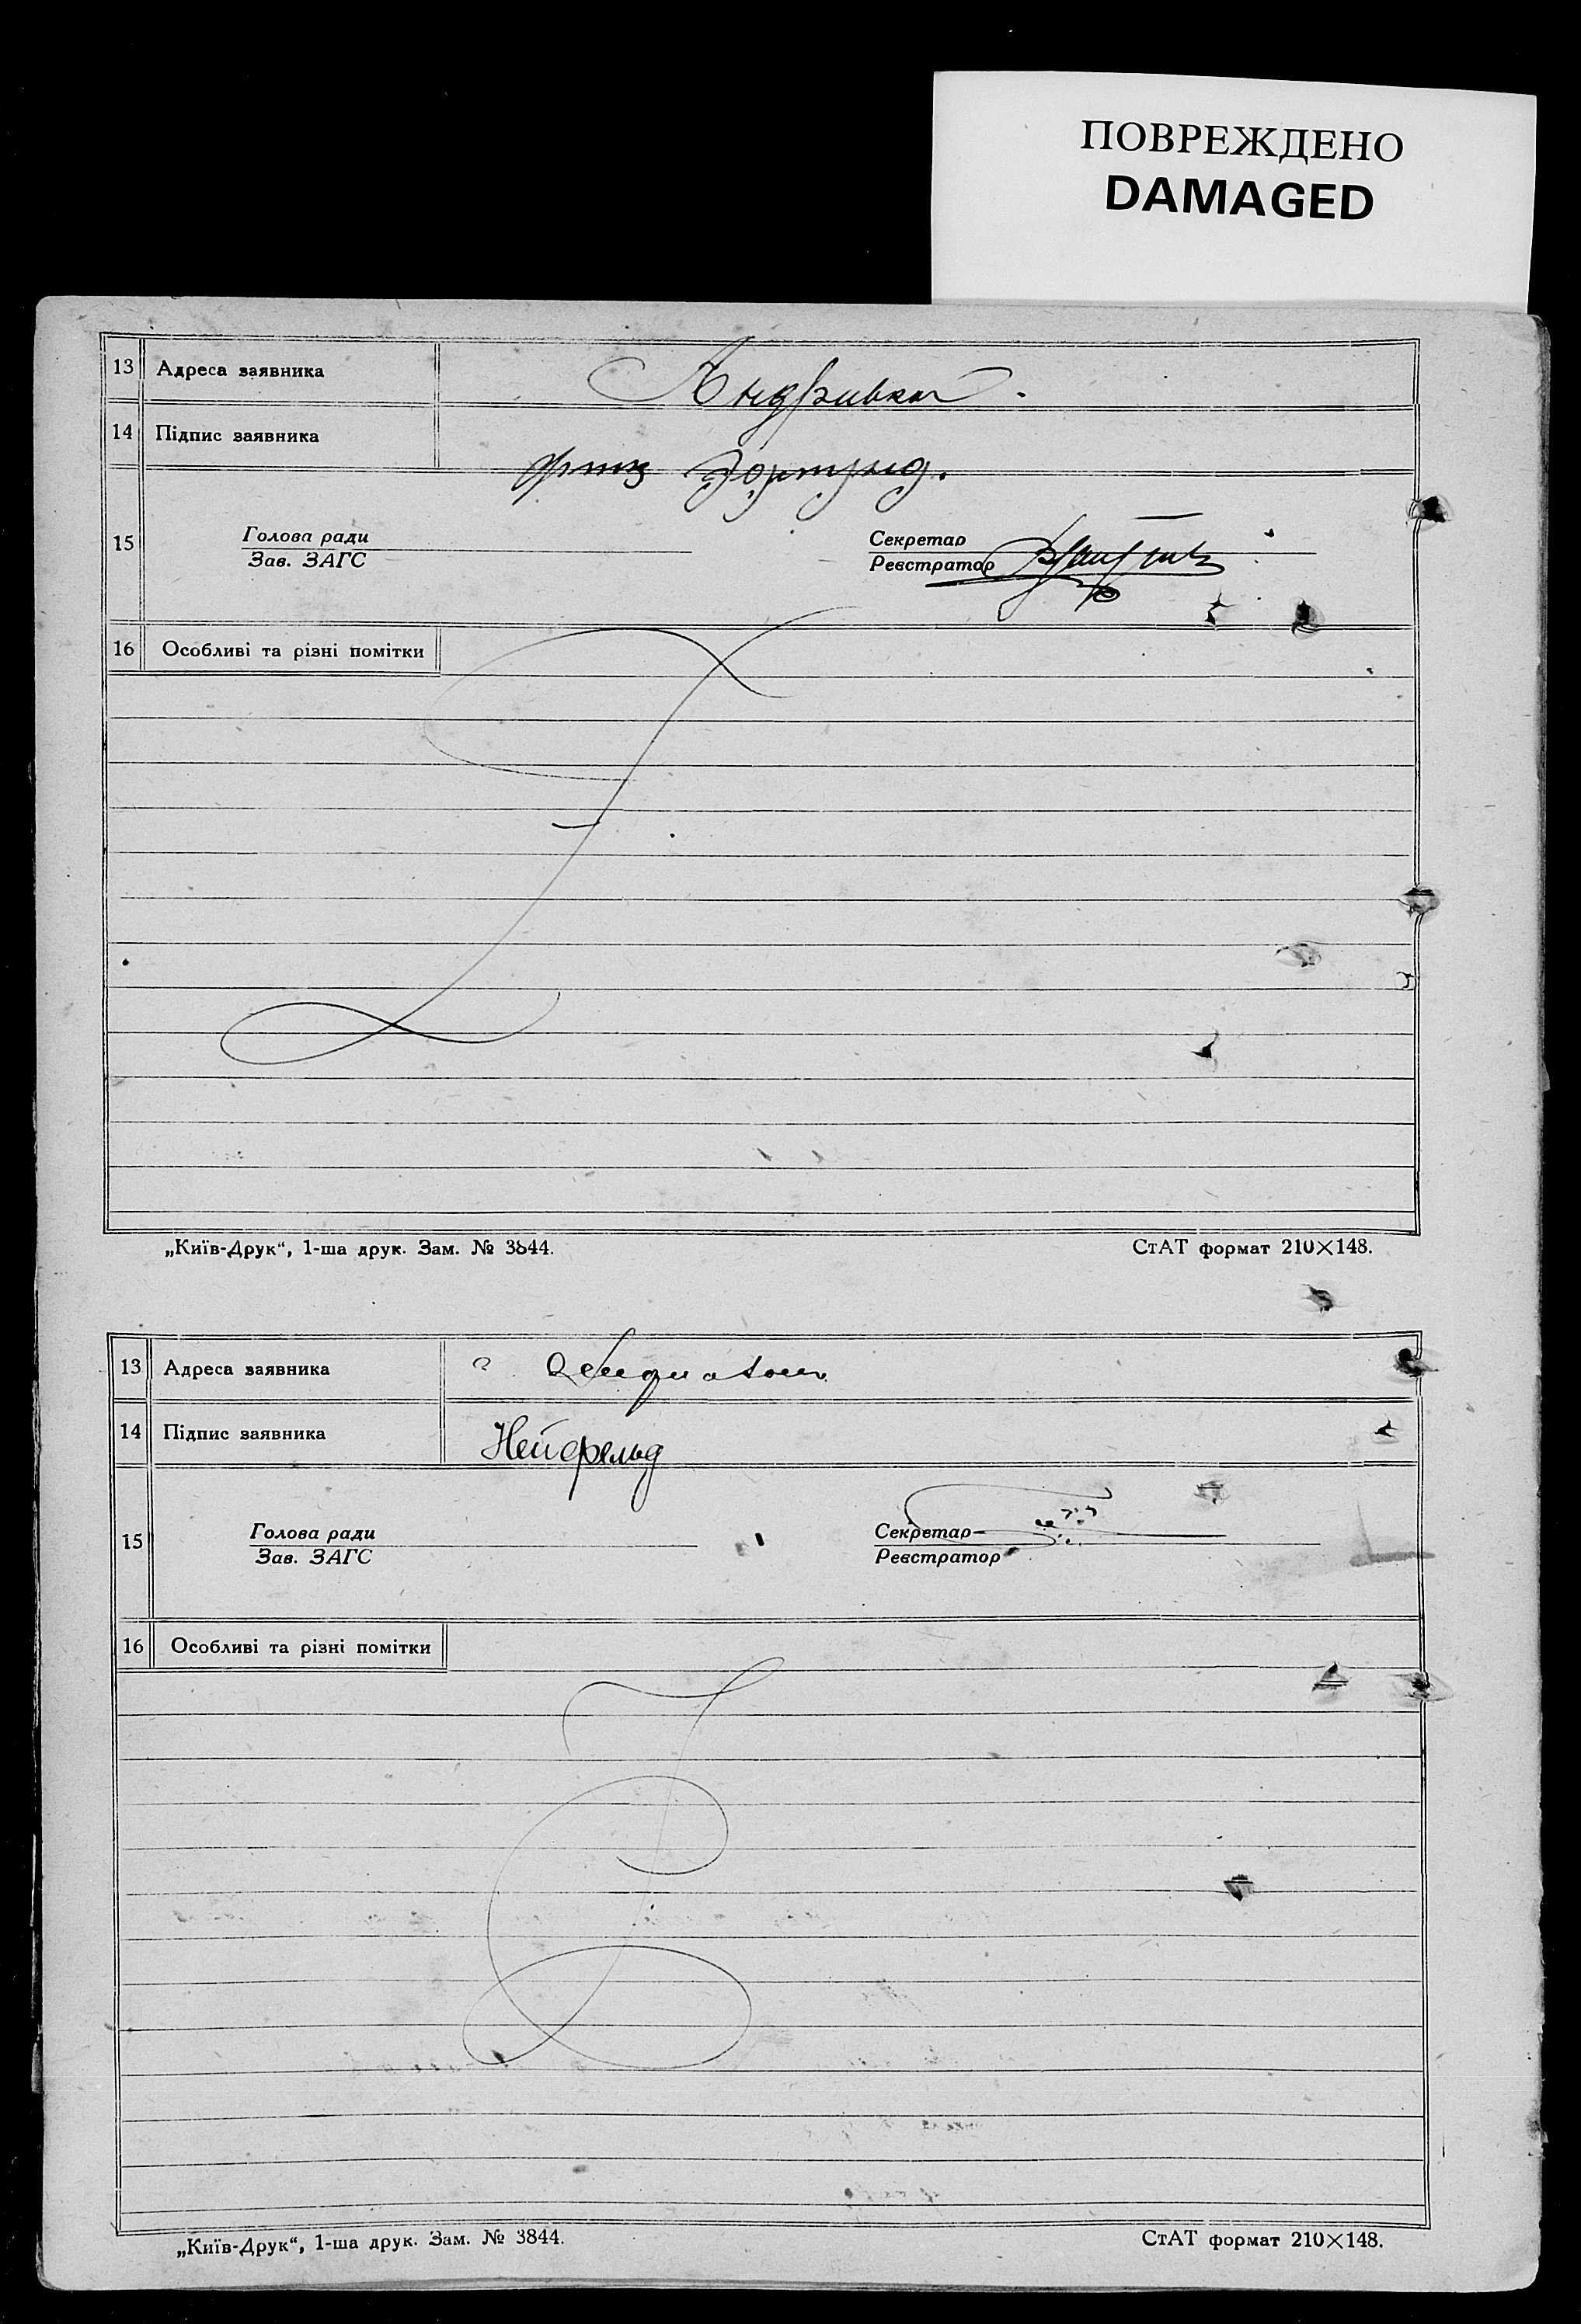 ПОВРЕЖДЕНО
DAMAGED
13 Адреса заявника
14 Підпис заявника
15 Голова ради
Зав. ЗАГС
Секретар
Реєстратор
16 Особливі та різні помітки
„Київ-Друк“, 1-ша друк. Зам. № 3844. СтАТ формат 210×148.
13 Адреса заявника
14 Підпис заявника Нейфельд
15 Голова ради
Зав. ЗАГС
Секретар
Реєстратор
16 Особливі та різні помітки
„Київ-Друк“, 1-ша друк. Зам. № 3844. СтАТ формат 210×148.